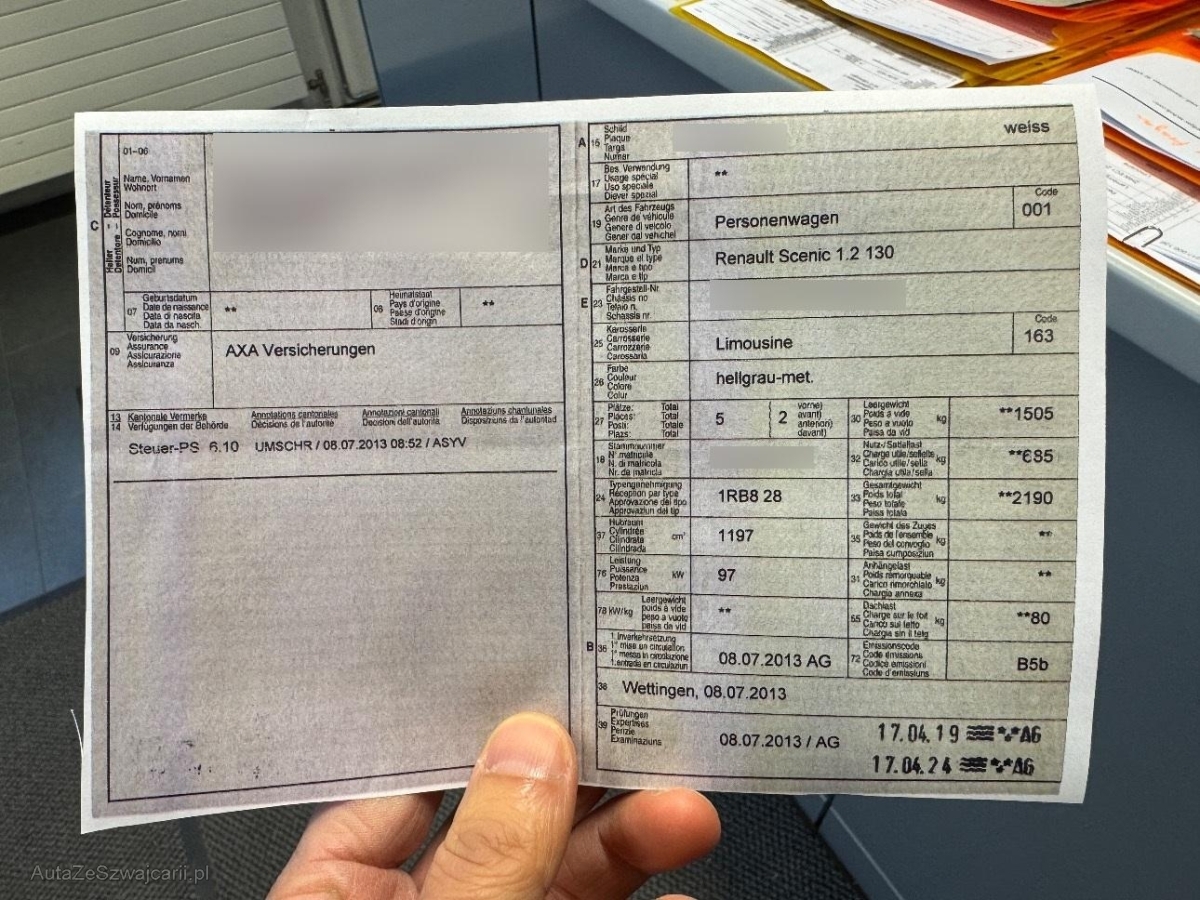 C
Halter - Détenteur
Detentore - Possessur
01-06
Name, Vornamen
Wohnort
Nom, prénoms
Domicile
Cognome, nomi
Domicilio
Num, prenums
Domicil
07
Geburtsdatum
Date de naissance
Data di nascita
Data da nasch.
**
08
Heimatstaat
Pays d'origine
Paese d'origine
Stadi d'origin
**
09
Versicherung
Assurance
Assicurazione
Assicuranza
AXA Versicherungen
13 Kantonale Vermerke Annotations cantonales Annotazioni cantonali Annotaziuns chantunales
14 Verfügungen der Behörde Décisions de l'autorité Decisioni dell'autorità Disposiziuns da l'autoritad
Steuer-PS 6.10 UMSCHR / 08.07.2013 08:52 / ASYV
A 15
Schild
Plaque
Targa
Numer
weiss
17
Bes. Verwendung
Usage spécial
Uso speciale
Diever spezial
**
19
Art des Fahrzeugs
Genre de véhicule
Genere di veicolo
Gener dal vehichel
Personenwagen
Code
001
D 21
Marke und Typ
Marque et type
Marca e tipo
Marca e tip
Renault Scenic 1.2 130
E 23
Fahrgestell-Nr.
Châssis no
Telaio n.
Schassis nr.
25
Karosserie
Carrosserie
Carrozzeria
Carossaria
Limousine
Code
163
26
Farbe
Couleur
Colore
Colur
hellgrau-met.
27
Plätze: Total
Places: Total
Posti: Totale
Plazs: Total
5
2
vorne)
avant)
anteriori)
davant)
30
Leergewicht
Poids à vide
Peso a vuoto
Paisa da vid
kg
**1505
18
Stammnummer
N° matricule
N. di matricola
Nr. da matricla
32
Nutz-/Sattellast
Charge utile/sellette
Carico utile/sella
Chargia utila/sella
kg
**685
24
Typengenehmigung
Réception par type
Approvazione del tipo
Approvaziun dal tip
1RB8 28
33
Gesamtgewicht
Poids total
Peso totale
Paisa totala
kg
**2190
37
Hubraum
Cylindrée
Cilindrata
Cilindrada
cm³
1197
35
Gewicht des Zuges
Poids de l'ensemble
Peso del convoglio
Paisa cumposiziun
kg
**
76
Leistung
Puissance
Potenza
Prestaziun
kW
97
31
Anhängelast
Poids remorquable
Carico rimorchiato
Chargia annexa
kg
**
78 kW/kg
Leergewicht
poids à vide
peso a vuoto
paisa da vid
**
55
Dachlast
Charge sur le toit
Carico sul tetto
Chargia sin il tetg
kg
**80
B 36
1. Inverkehrsetzung
1re mise en circulation
1a messa in circolazione
1. entrada en circulaziun
08.07.2013 AG
72
Emissionscode
Code émissions
Codice emissioni
Code d'emissiuns
B5b
38
Wettingen, 08.07.2013
39
Prüfungen
Expertises
Perizie
Examinaziuns
08.07.2013 / AG
17.04.19 AG
17.04.24 AG
AutaZeSzwajcarii.pl